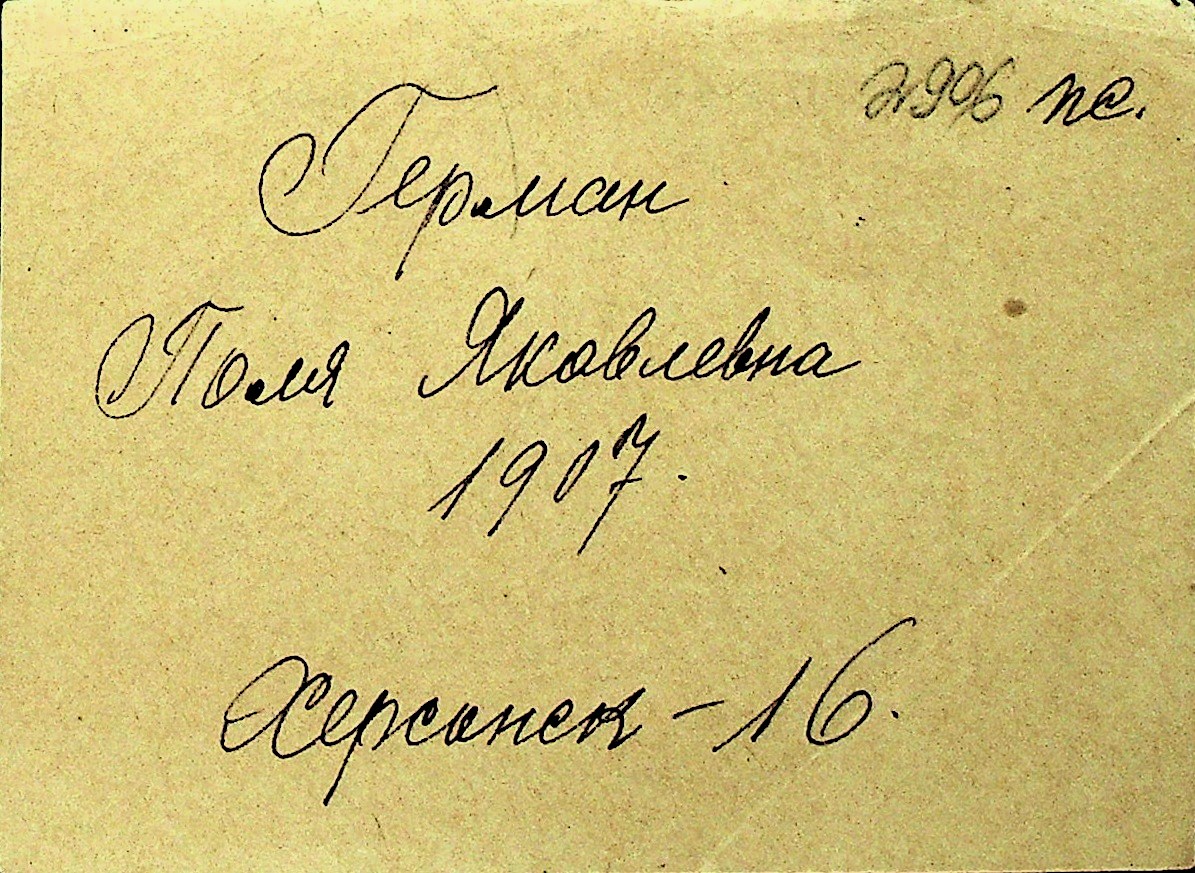 пс.
Герман
Поля Яковлевна
1907.
Херсонск - 16.